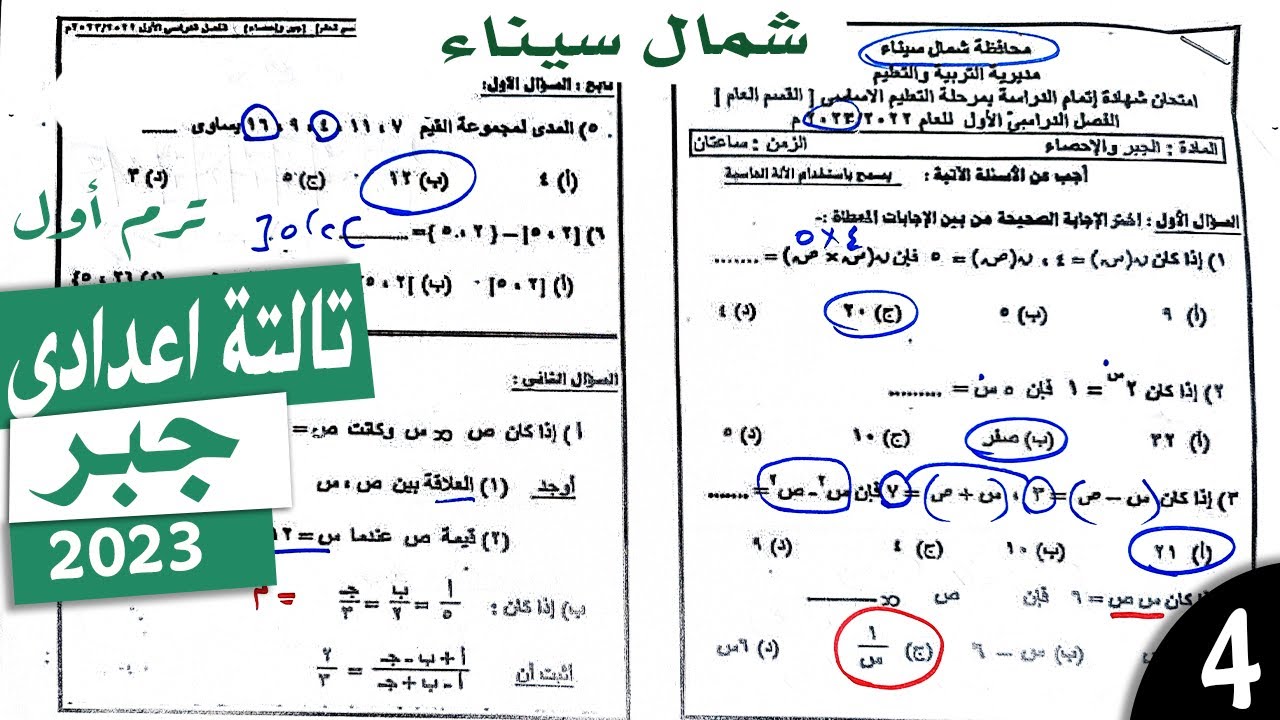 شمال سيناء
محافظة شمال سيناء
مديرية التربية والتعليم
امتحان شهادة إتمام الدراسة بمرحلة التعليم الاساسى [ القسم العام ]
الفصل الدراسىّ الأول للعام ٢٠٢٢/٢٠٢٣ م
المادة : الجبر والإحصاء الزمن : ساعتان
أجب عن الأسئلة الآتية : يسمح باستخدام الألة الحاسبة
السؤال الأول : إختر الإجابة الصحيحة من بين الإجابات المعطاة :-
٥ × ٤
١) إذا كان ن(س) = ٤ ، ن(ص) = ٥ فإن ن(س × ص) = .......
(أ) ٩ (ب) ٥ (ج) ٢٠ (د) ٤
٢) إذا كان ٢س = ١ فإن ٥ س = .........
(أ) ٣٢ (ب) صفر (ج) ١٠ (د) ٥
٣) إذا كان (س – ص) = ٣ ، (س + ص) = ٧ فإن س٢ - ص٢ = .......
(أ) ٢١ (ب) ١٠ (ج) ٤ (د) ٩
كان س ص = ٩ فإن ص ∝
(ب) س – ٦ (ج) ١/س (د) ٦س
[جبر وإحصاء] الفصل الدراسي الأول ٢٠٢٢/٢٠٢٣م
تابع : السؤال الأول:
٥) المدى لمجموعة القيم ٧ ، ١١ ، ٤ ، ٩ ، ١٦ يساوى ......
(أ) ٤ (ب) ١٢ (ج) ٥ (د) ٣
]٢،٥[
٦) [٢ ، ٥] – { ٢ ، ٥ } =
(أ) [٢ ، ٥] (ب) ]٢ ، ٥ (د) {٢ ، ٥}
السؤال الثانى :
أ ) إذا كان ص ∝ س وكانت ص =
أوجد (١) العلاقة بين ص ، س
(٢) قيمة ص عندما س = ١٢
ب) إذا كان : أ/٥ = ب/٧ = جـ/٣ = م
أثبت أن أ + ب - جـ/أ - ب + جـ = ٢/٣
ترم أول
تالتة اعدادى
جبر
2023
4